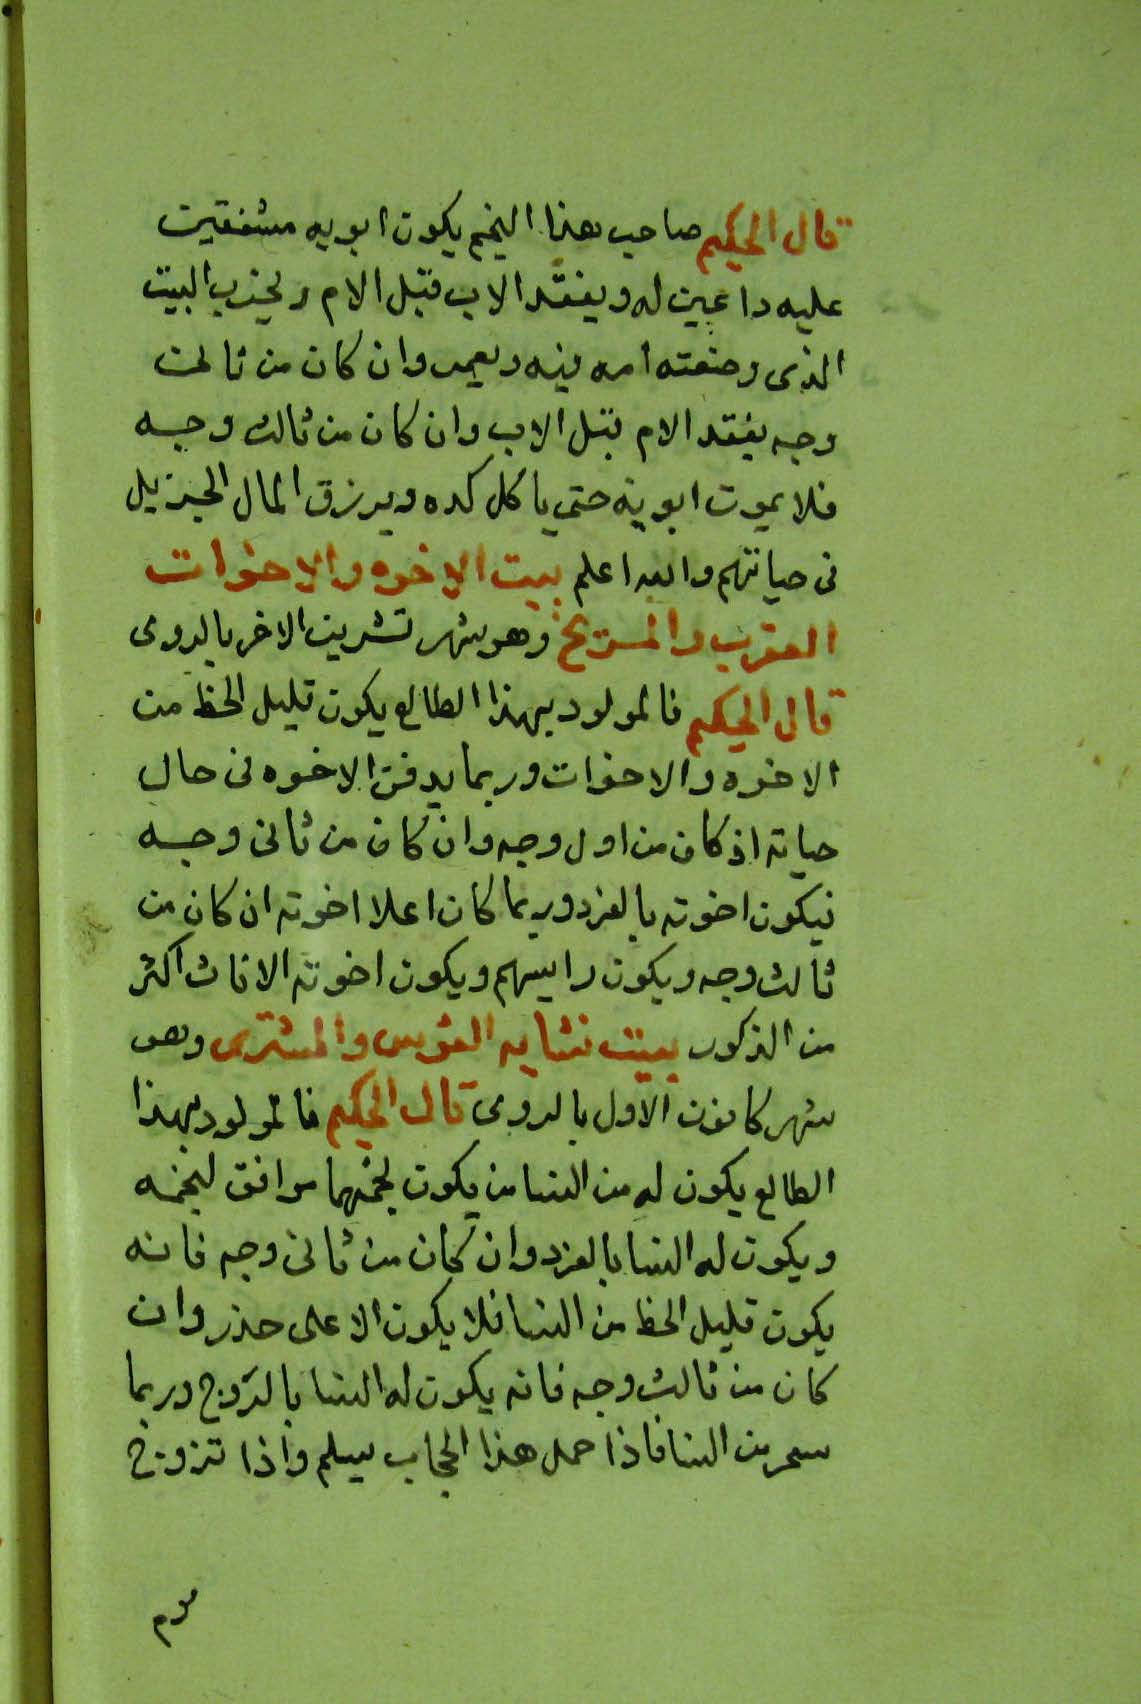 قال الحكيم صاحب هذا النجم يكون ابويه مشفقين
عليه داعين له ويفقد الاب قبل الام ويخرب البيت
الذى وضعته امه فيه ويعمر وان كان من ثالث
وجه يفقد الام قبل الاب وان كان من ثالث وجه
فلا يموت ابويه حتى ياكل كده ويرزق المال الجزيل
فى حياتهم والله اعلم بيت الاخوه والاخوات
العقرب والمريخ وهو شهر تشرين الاخر بالرومى
قال الحكيم فالمولود بهذا الطالع يكون قليل الحظ من
الاخوه والاخوات وربما يدفن الاخوه فى حال
حياته اذ كان من اول وجه وان كان من ثانى وجه
فيكون اخوته بالفرد وربما كان اعلا اخوته ان كان من
ثالث وجه ويكون راييسهم ويكون اخوته الاناث اكثر
من الذكور بيت نشابه القوس والمشترى وهو
شهر كانون الاول بالرومى قال الحكيم فالمولود بهذا
الطالع يكون له من النسا من يكون نجمهما موافق لنجمه
ويكون له النسا بالفرد وان كان من ثانى وجه فانه
يكون قليل الحظ من النسا فلا يكون الا على حذر وان
كان من ثالث وجه فانه يكون له النسا بالزوج وربما
سحر من النسا فاذا حمل هذا الحجاب يسلم واذا تزوج